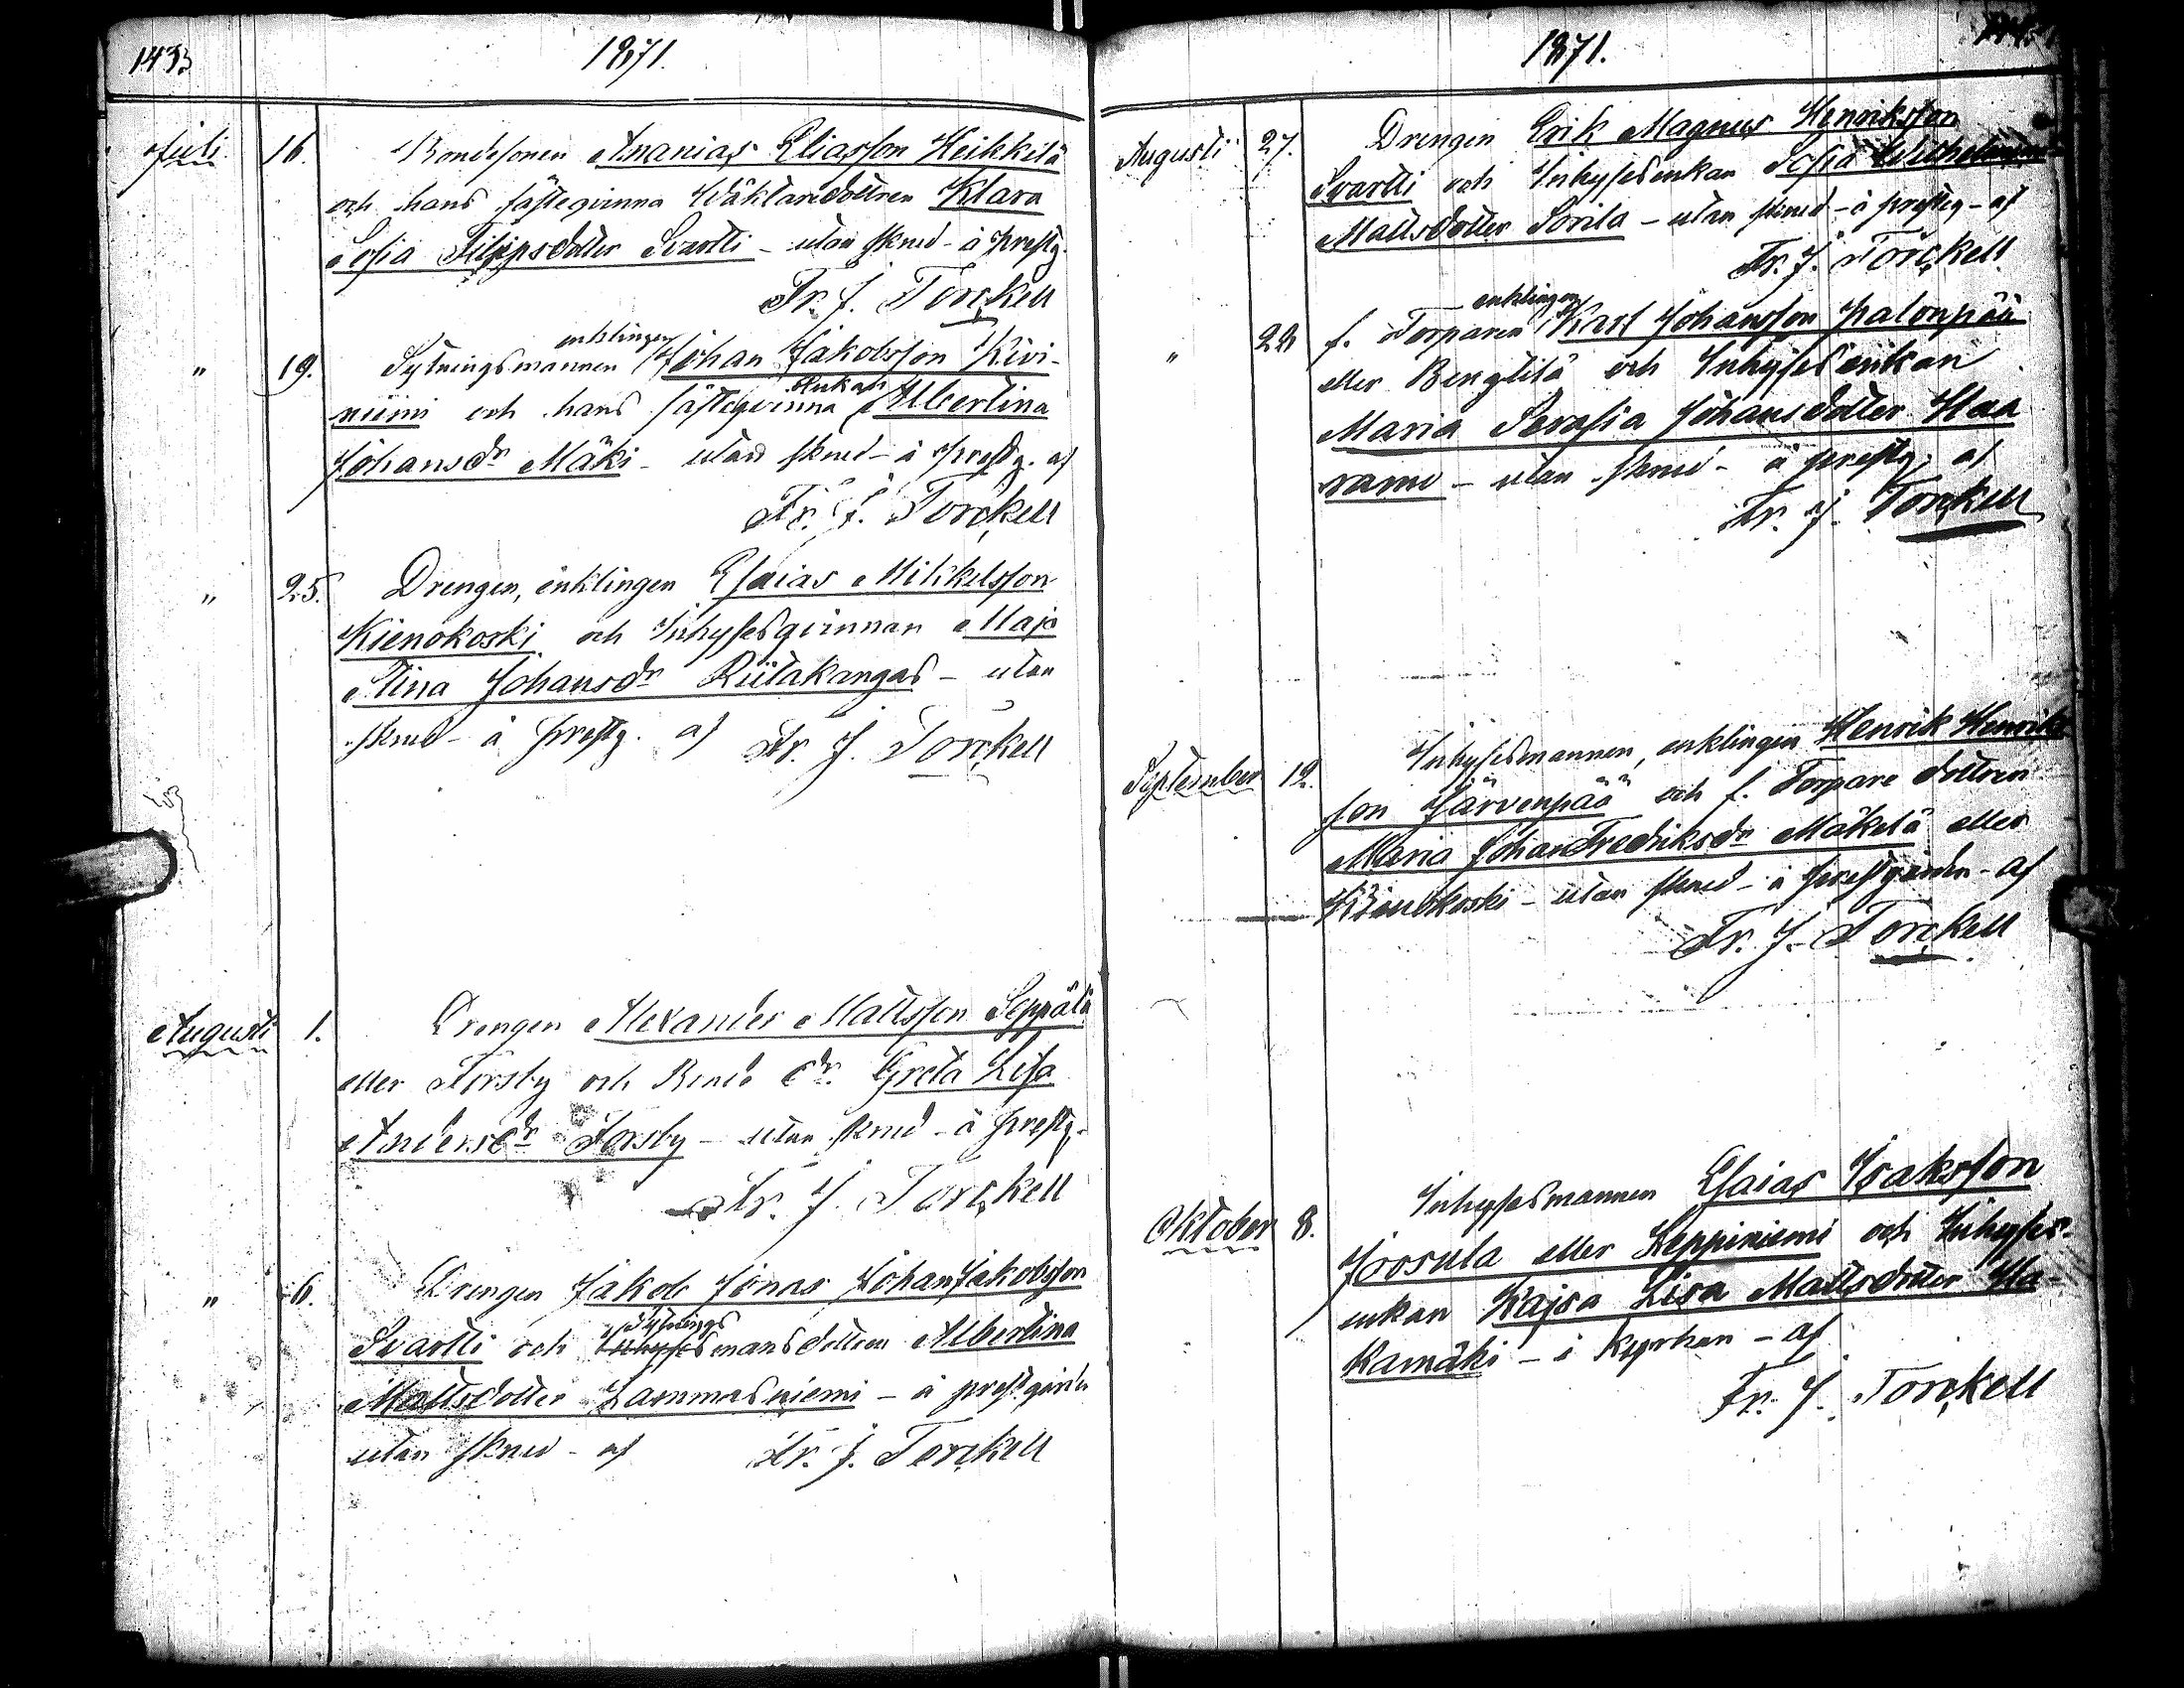 143
1871.
Juli 16. Bondesonen Ananias Eliasson Heikkilä
och hans fästeqvinna Wäktaredottren Klara
Sofia Filipsdotter Svartti - utan skrud - å prestg.
Fr. J. Torckell
" 19. Sytningsmannen enklingen Johan Jakobsson Kivi-
niimi och hans fästeqvinna Enkan Albertina
Johansdr Mäki - utan skrud - å prestg. af
Fr. J. Torckell
" 25. Drengen, enklingen Esaias Mikkelsson
Kienokoski och Inhysesqvinnan Maja
Stina Johansdr Riitakangas - utan
skrud - å prestg. af Fr. J. Torckell
Augusti 1. Drengen Alexander Mattsson Seppälä
eller Forsby och Bonde dr. Greta Lisa
Andersdr Forsby - utan skrud - å prestg.
Fr. J. Torckell
" 6. Drengen Jakob Jonas Johan Jakobsson
Svartti och Sytnings Inhyses mansdottren Albertina
Mattsdotter Lammasniemi - å prestgården
utan skrud - af Fr. J. Torckell
1871.
Augusti 27. Drengen Erik Magnus Henriksson
Svartti och Inhysesenkan Sofia Wilhelmina
Mattsdotter Sorila - utan skrud - å prestg - af
Fr. J. Torckell
" 22 f. Torparen enklingen Karl Johansson Palonpää
eller Benglilä och Inhysesenkan
Maria Serafia Johansdotter Haa
ramo - utan skrud - å prestg. af
Fr. J. Torckell
September 12. Inhysesmannen, enklingen Henrik Henriks
son Järvenpää och f. Torpare dottren
Maria Johan Fredriksdr Mäkelä eller
Kienokoski - utan skrud - å prestgården - af
Fr. J. Torckell
Oktober 8. Inhysesmannen Esaias Isaksson
Joosula eller Leppiniemi och Inhyses-
enkan Kajsa Lisa Mattsdotter Ha-
kamäki - i kyrkan - af
Fr. J. Torckell